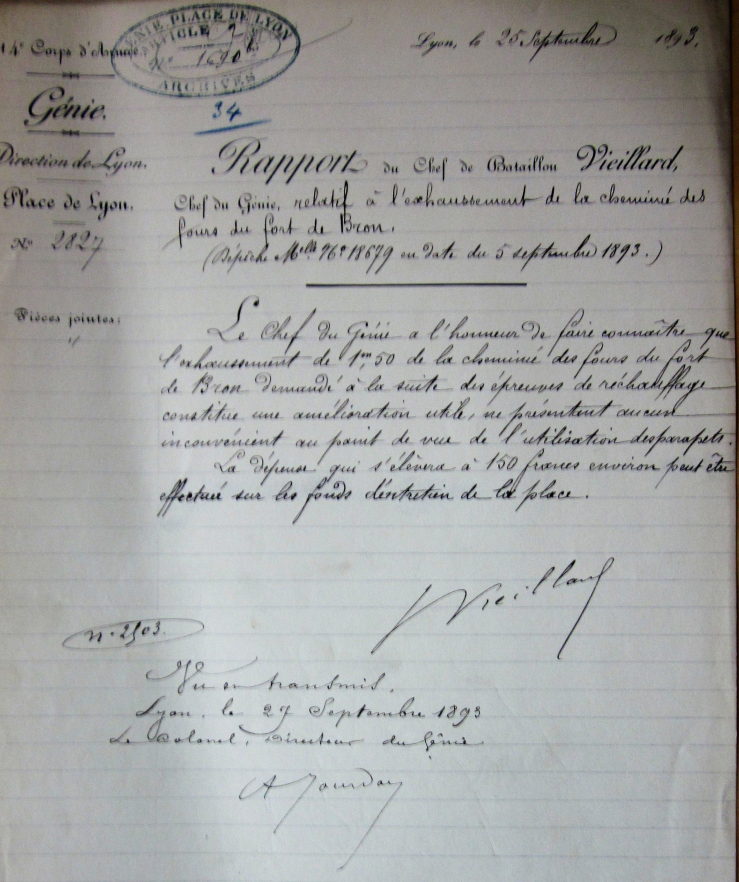 14e Corps d'Armée
GÉNIE PLACE DE LYON
ARTICLE 7
No 1690 b
ARCHIVES
34
Lyon, le 25 Septembre 1893.
Génie.
Direction de Lyon.
Place de Lyon.
No 2827
Pièces jointes:
"
Rapport du Chef de Bataillon Vieillard,
Chef du Génie, relatif à l'exhaussement de la cheminée des
fours du fort de Bron.
(Dépêche Mlle No 18679 en date du 5 septembre 1893.)
Le Chef du Génie a l'honneur de faire connaître que
l'exhaussement de 1m,50 de la cheminée des fours du fort
de Bron demandé à la suite des épreuves de réchauffage
constitue une amélioration utile, ne présentent aucun
inconvénient au point de vue de l'utilisation des parapets.
La dépense qui s'élèvera à 150 francs environ peut être
effectuée sur les fonds d'entretien de la place.
Vieillard
n° 2503.
Vu en transmis.
Lyon, le 27 Septembre 1893
Le Colonel, Directeur du Génie
A Jourdoy